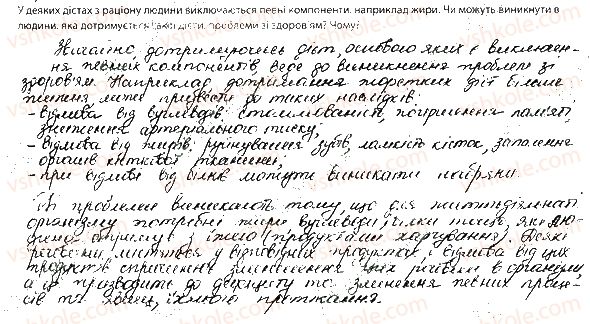 У деяких дієтах з раціону людини виключаються певні компоненти. наприклад жири. Чи можуть виникнути в
людини. яка дотримується такої дієти. проблеми зі здоров'ям? Чому?
Звичайно, дотримуючись дієт, основою яких є виключен-
ня певних компонентів, веде до виникнення проблем зі
здоров'ям. Наприклад, дотримання жорстких дієт більше
тижня може призвести до таких наслідків:
- відмова від вуглеводів: стомлюваність, погіршення пам'яті,
зниження артеріального тиску;
- відмова від жирів: руйнування зубів, ламкість кісток, запалення
органів, кісткової тканини;
- при відмові від білків можуть виникати набряки.
Ці проблеми виникають тому, що для життєдіяльності
організму потрібні жири, вуглеводи, білки тощо, які лю-
дина отримує з їжею (продуктами харчування). Деякі
речовини містяться у відповідних продуктах і відмова від цих
продуктів спричинює зменшення цих речовин в організмі,
а це призводить до дефіциту та змінення певних проце-
сів та